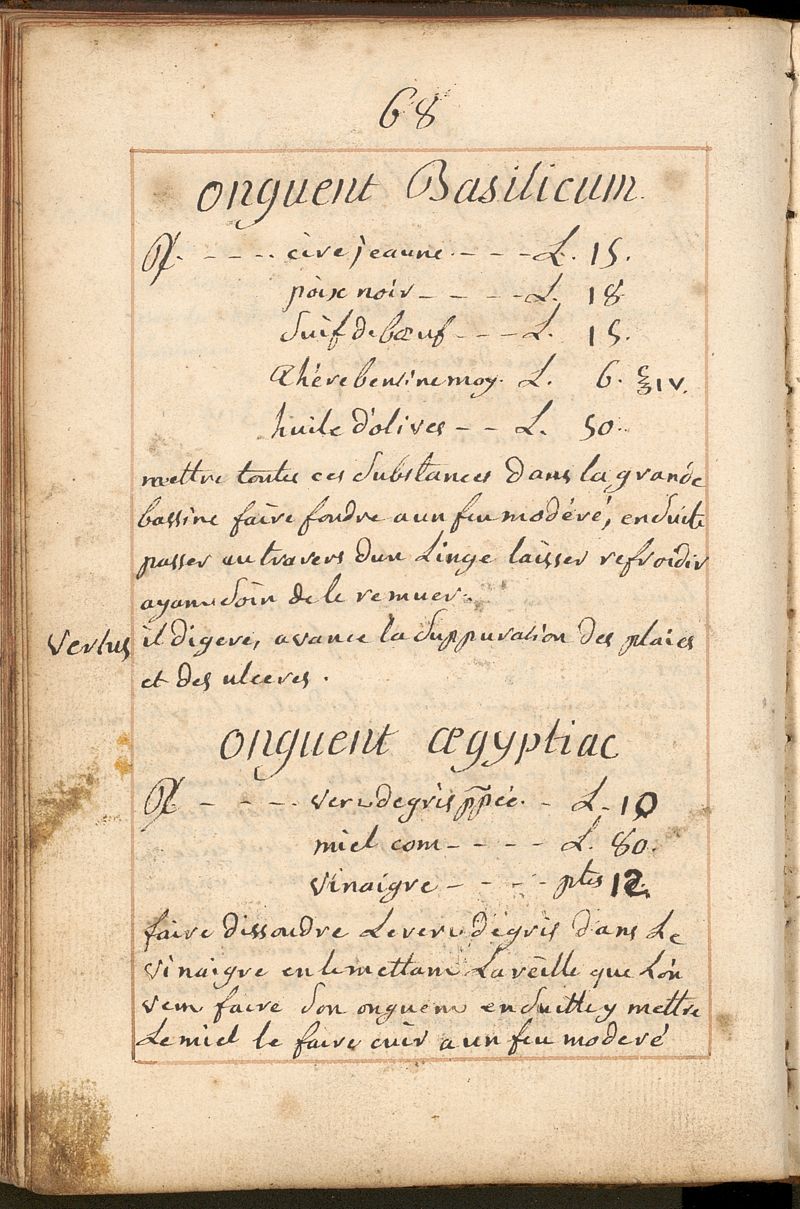 68
onguent Basilicum.
℞. - - - .. cire jeaune. - - - L. 15.
poix noir - - - - L. 18
Suif de bœuf - - - L. 15.
thérebentine moy. L. 6. ℥ IV.
huile d'olives - - L. 50.
mettre toutes ces substances dans la grande
bassine faire fondre a un feu modéré, ensuite
passer au travers dun Linge laisser refroidir
ayant soin de le remuer.
vertus il digere, avance la suppuration des plaies
et des ulceres.
onguent ægyptiac
℞ - - - .. vert de gris ppée. - L. 10
miel com - - - - L. 80.
vinaigre - - - - ptes 12.
faire dissoudre Le vert de gris dans Le
vinaigre en le mettant La veille que L'on
veut faire son onguent ensuitte y mettre
Le miel le faire cuir a un feu moderé